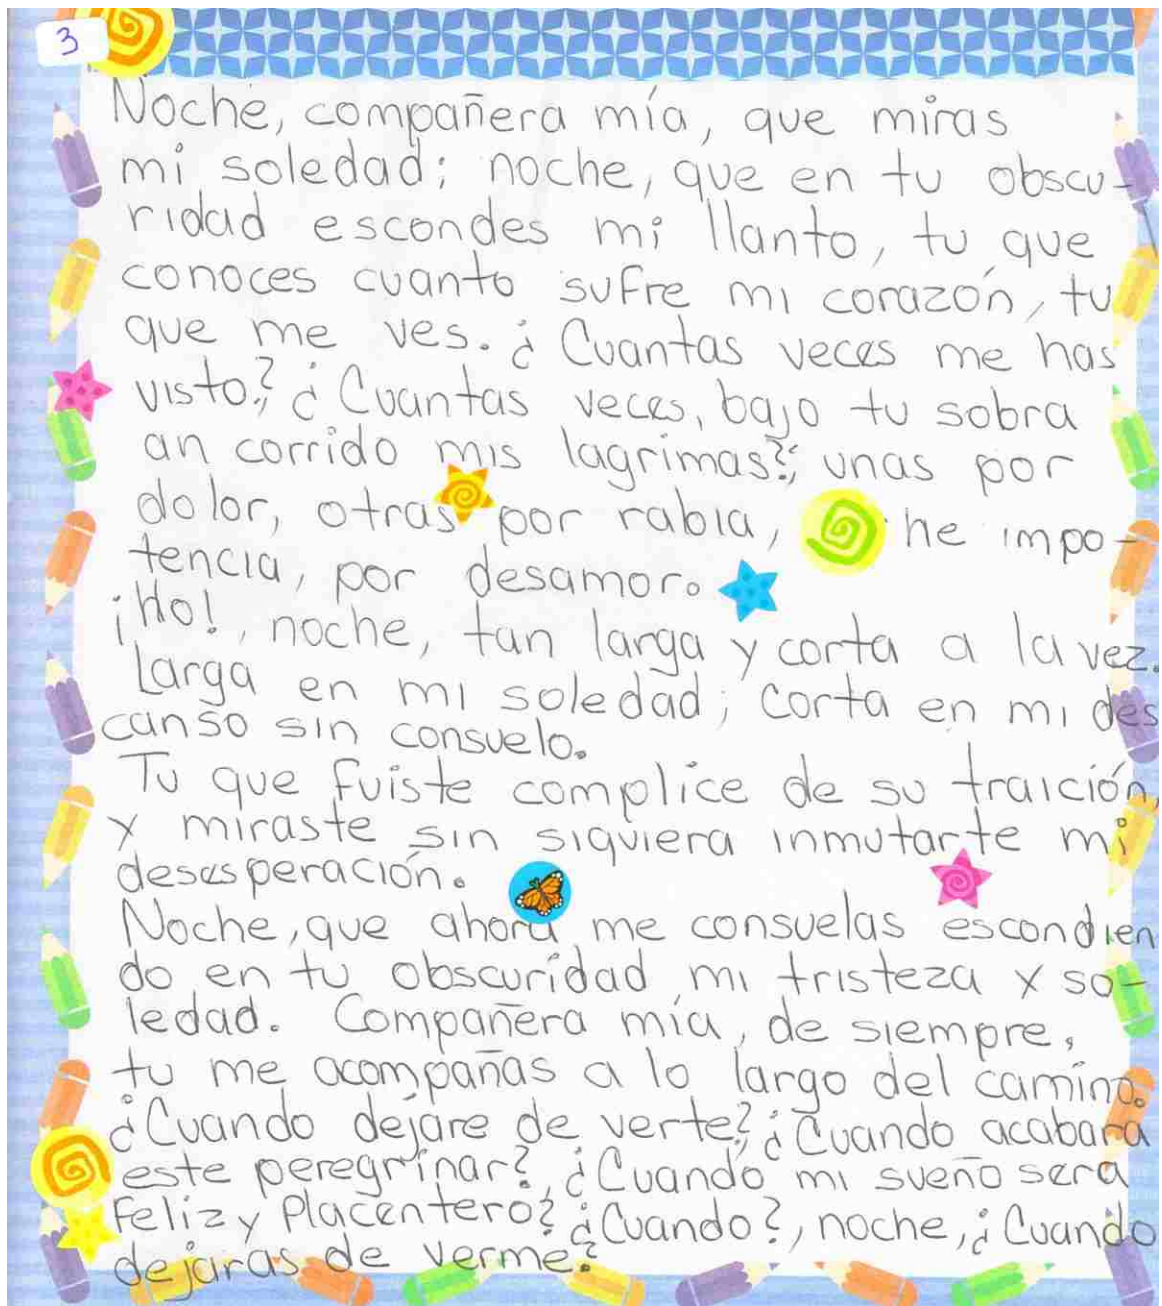 3
Noche, compañera mía, que miras
mi soledad; noche, que en tu obscu-
ridad escondes mi llanto, tu que
conoces cuanto sufre mi corazón, tu
que me ves. ¿Cuantas veces me has
visto?; ¿Cuantas veces, bajo tu sobra
an corrido mis lagrimas?; unas por
dolor, otras por rabia, he impo-
tencia, por desamor.
¡Ho!, noche, tan larga y corta a la vez.
Larga en mi soledad; corta en mi des
canso sin consuelo.
Tu que fuiste complice de su traición,
y miraste sin siquiera inmutarte mi
desesperación.
Noche, que ahora me consuelas escondien
do en tu obscuridad mi tristeza y so-
ledad. Compañera mía, de siempre,
tu me acompañas a lo largo del camino.
¿Cuando dejare de verte?, ¿Cuando acabara
este peregrinar?, ¿Cuando mi sueño sera
feliz y Placentero? ¿Cuando?, noche, ¿Cuando
dejaras de verme?